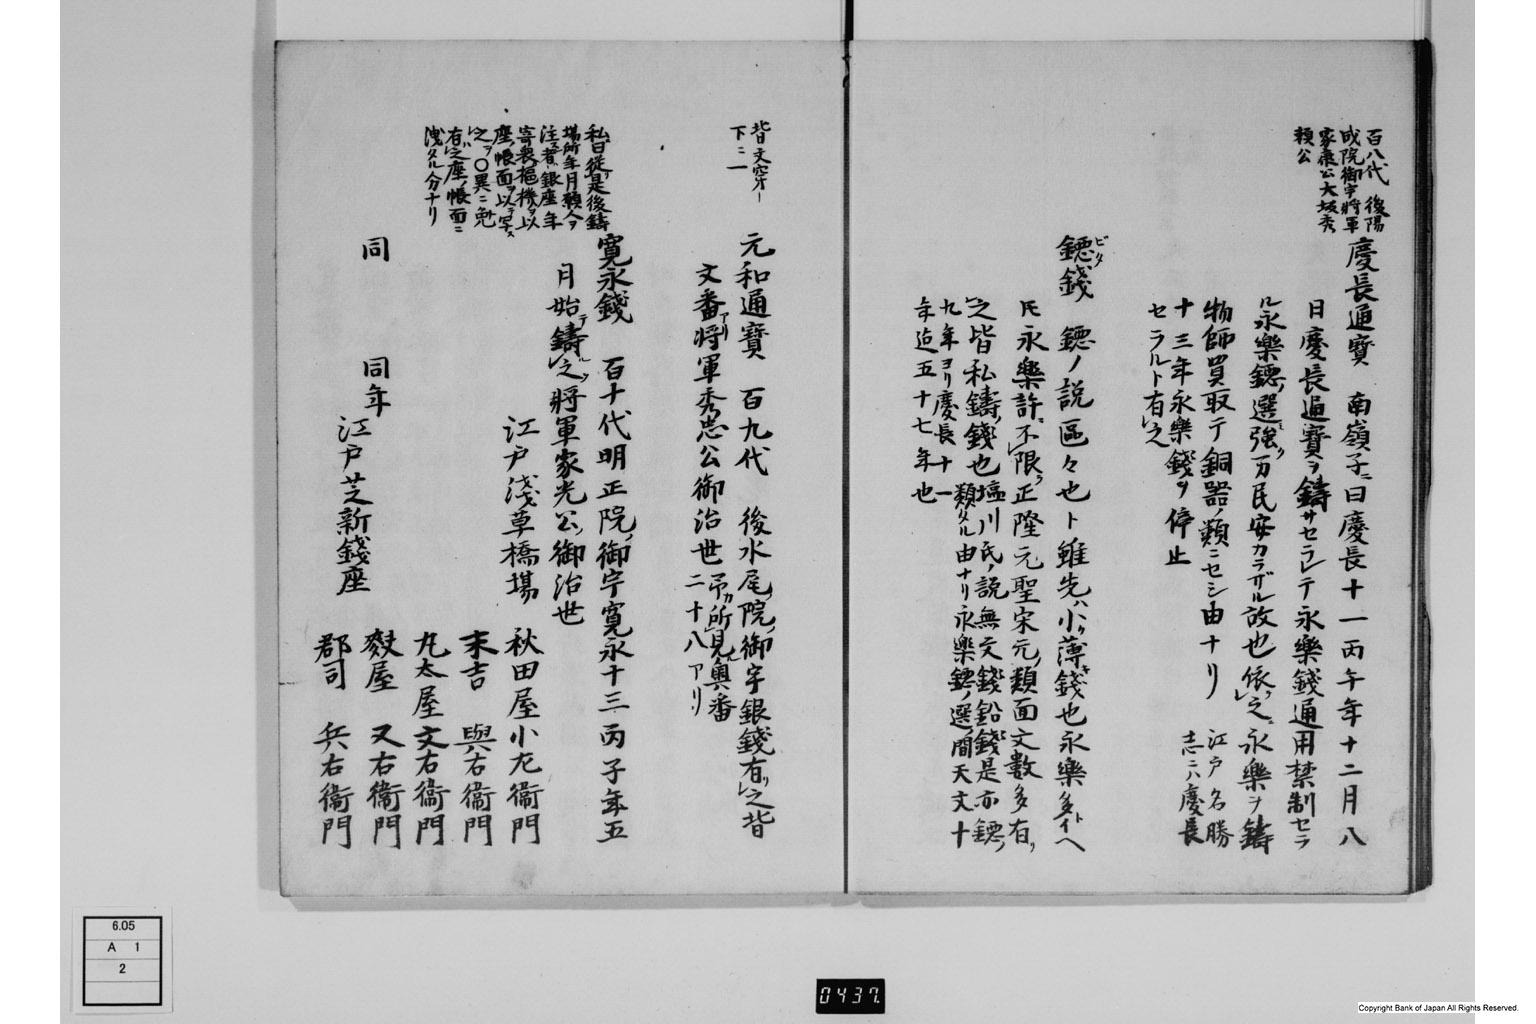 百八代 後陽
成院御宇将軍
家康公大坂秀
頼公
慶長通寳 南嶺子ニ曰慶長十一丙午年十二月八
日慶長通寳ヲ鋳サセラレテ永樂錢通用禁制セラ
ル永樂鐚ノ選強ク万民安カラザル故也依之ニ永樂ヲ鋳
物師買取テ銅器ノ類ニセシ由ナリ 江戸名勝
志ニハ慶長
十三年永樂錢ヲ停止
セラルト有之
鐚錢 鐚ノ説區々也ト雖先ハ小ク薄キ錢也永樂多イヘ
ビタ
𪜈永樂許ニ不限正隆元聖宋元ノ類面文數多有リ
之皆私鑄ノ錢也塩川氏ノ説無文錢鉛錢是亦鐚ノ
類タル由ナリ永樂鐚ノ選ノ間天文十
九年ヨリ慶長十一
年迠五十七年也
皆文穿ノ一
下ニ一
元和通寳 百九代 後水尾ノ院ノ御宇銀錢有リ之皆
文番アリ将軍秀忠公御治世 予カ所見ノ輿番
二十八アリ
私曰從是後鑄
場所年月願人ヲ
注者銀座年
寄衆樞機ヲ以
座ノ帳面ヲ以テ写ス
之ヲ〇異ニ免
有之座ノ帳面ニ
洩タル分ナリ
寛永錢 百十代明正院ノ御宇寛永十三丙子年五
月始テ鑄ル之ヲ将軍家光公ノ御治世
江戸浅草橋場
秋田屋小左衛門
末吉 與右衛門
丸太屋文右衛門
同 同年
江戸芝新錢座
麩屋 又右衛門
郡司 兵右衛門
6.05
A 1
2
0437.
Copyright Bank of Japan All Rights Reserved.